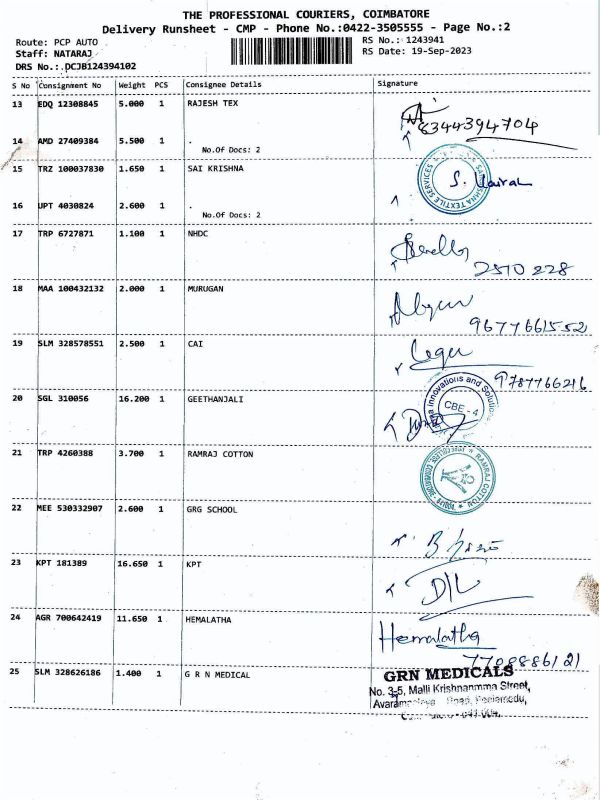 THE PROFESSIONAL COURIERS, COIMBATORE
Delivery Runsheet - CMP - Phone No.:0422-3505555 - Page No.:2
Route: PCP AUTO
Staff: NATARAJ
DRS No.: DCJB124394102
RS No.: 1243941
RS Date: 19-Sep-2023
S No Consignment No Weight PCS Consignee Details Signature
13 EDQ 12308845 5.000 1 RAJESH TEX
8344394704
14 AMD 27409384 5.500 1 .
No.Of Docs: 2
15 TRZ 100037830 1.650 1 SAI KRISHNA
16 UPT 4030824 2.600 1 .
No.Of Docs: 2
17 TRP 6727871 1.100 1 NHDC
2510 228
18 MAA 100432132 2.000 1 MURUGAN
9677661552
19 SLM 328578551 2.500 1 CAI
9787766216
20 SGL 310056 16.200 1 GEETHANJALI
Innovations and Solutions
CBE - 4
21 TRP 4260388 3.700 1 RAMRAJ COTTON
RAMRAJ COTTON
22 MEE 530332907 2.600 1 GRG SCHOOL
23 KPT 181389 16.650 1 KPT
24 AGR 700642419 11.650 1 HEMALATHA
Hemalatha
7708886121
25 SLM 328626186 1.400 1 G R N MEDICAL
GRN MEDICALS
No. 3-5, Malli Krishnanmma Street,